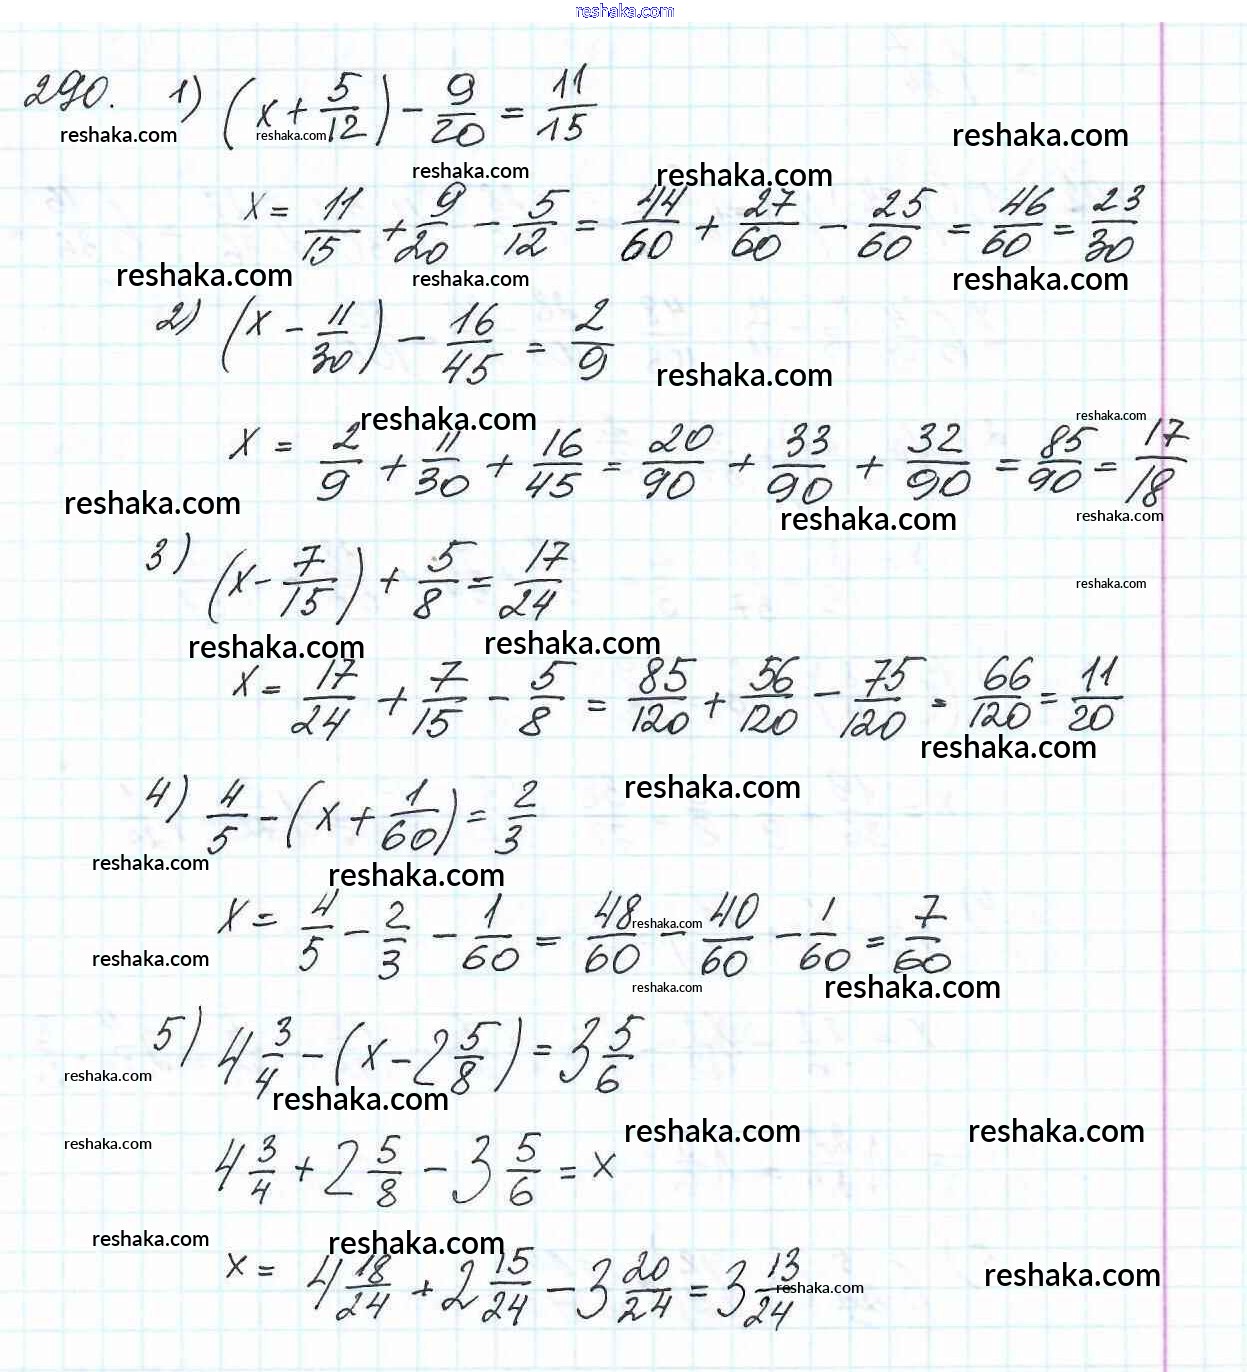 reshaka.com
290. 1) (x + 5/12) - 9/20 = 11/15
reshaka.com reshaka.com reshaka.com
reshaka.com reshaka.com
x = 11/15 + 9/20 - 5/12 = 44/60 + 27/60 - 25/60 = 46/60 = 23/30
reshaka.com reshaka.com reshaka.com
2) (x - 11/30) - 16/45 = 2/9
reshaka.com
reshaka.com reshaka.com
x = 2/9 + 11/30 + 16/45 = 20/90 + 33/90 + 32/90 = 85/90 = 17/18
reshaka.com reshaka.com reshaka.com
3) (x - 7/15) + 5/8 = 17/24
reshaka.com
reshaka.com reshaka.com
x = 17/24 + 7/15 - 5/8 = 85/120 + 56/120 - 75/120 = 66/120 = 11/20
reshaka.com
reshaka.com
4) 4/5 - (x + 1/60) = 2/3
reshaka.com reshaka.com
x = 4/5 - 2/3 - 1/60 = 48/60 - 40/60 - 1/60 = 7/60
reshaka.com
reshaka.com reshaka.com reshaka.com
5) 4 3/4 - (x - 2 5/8) = 3 5/6
reshaka.com
reshaka.com
reshaka.com reshaka.com
reshaka.com
4 3/4 + 2 5/8 - 3 5/6 = x
reshaka.com reshaka.com
x = 4 18/24 + 2 15/24 - 3 20/24 = 3 13/24
reshaka.com reshaka.com